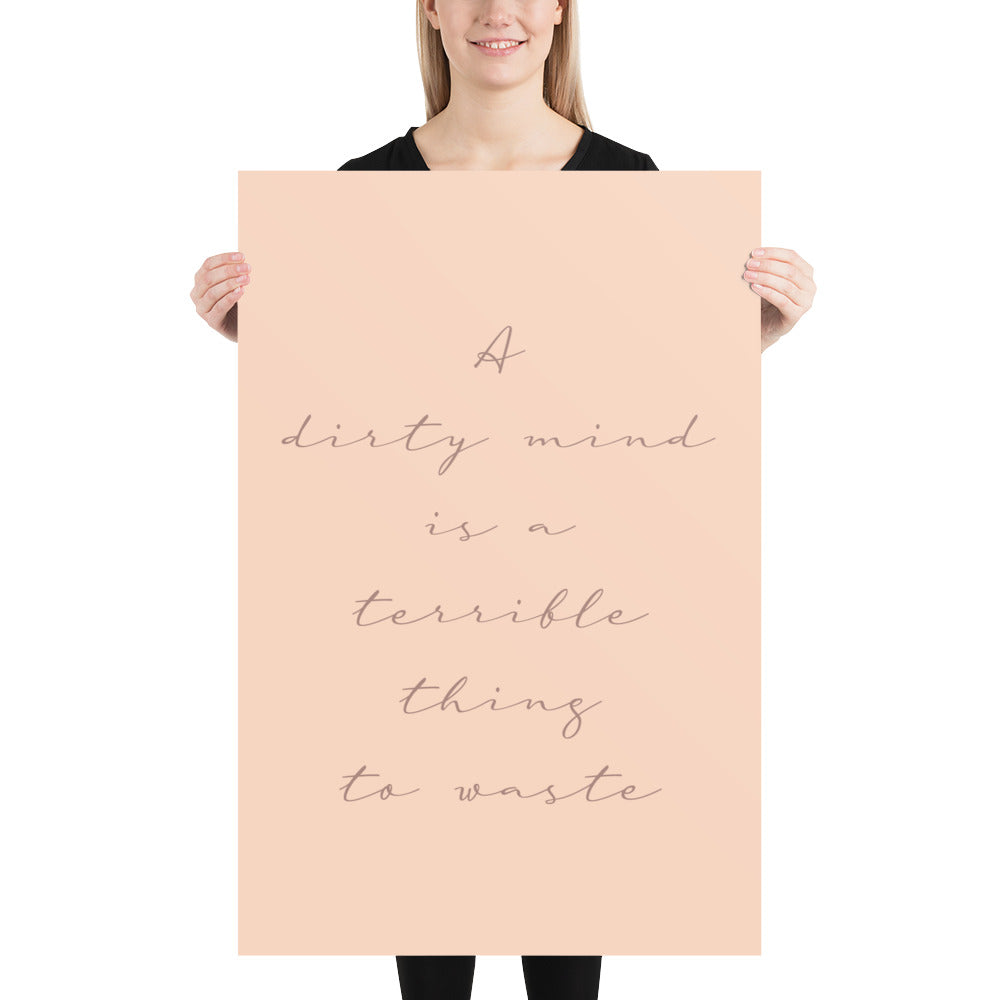 A
dirty mind
is a
terrible
thing
to waste